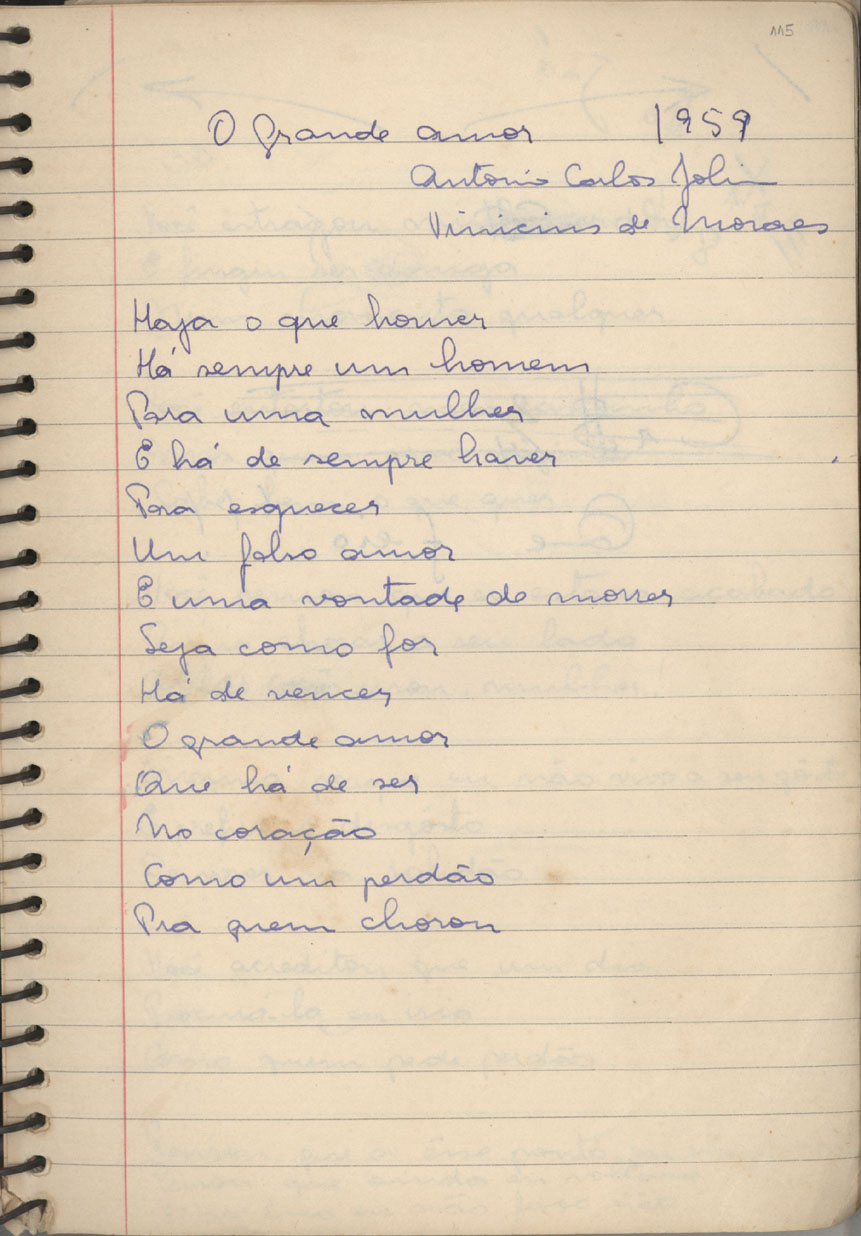 115
O grande amor 1959
Antonio Carlos Jobim
Vinicius de Moraes
Haja o que houver
Há sempre um homem
Para uma mulher
E há de sempre haver
Para esquecer
Um falso amor
E uma vontade de morrer
Seja como for
Há de vencer
O grande amor
Que há de ser
No coração
Como um perdão
Pra quem chorou